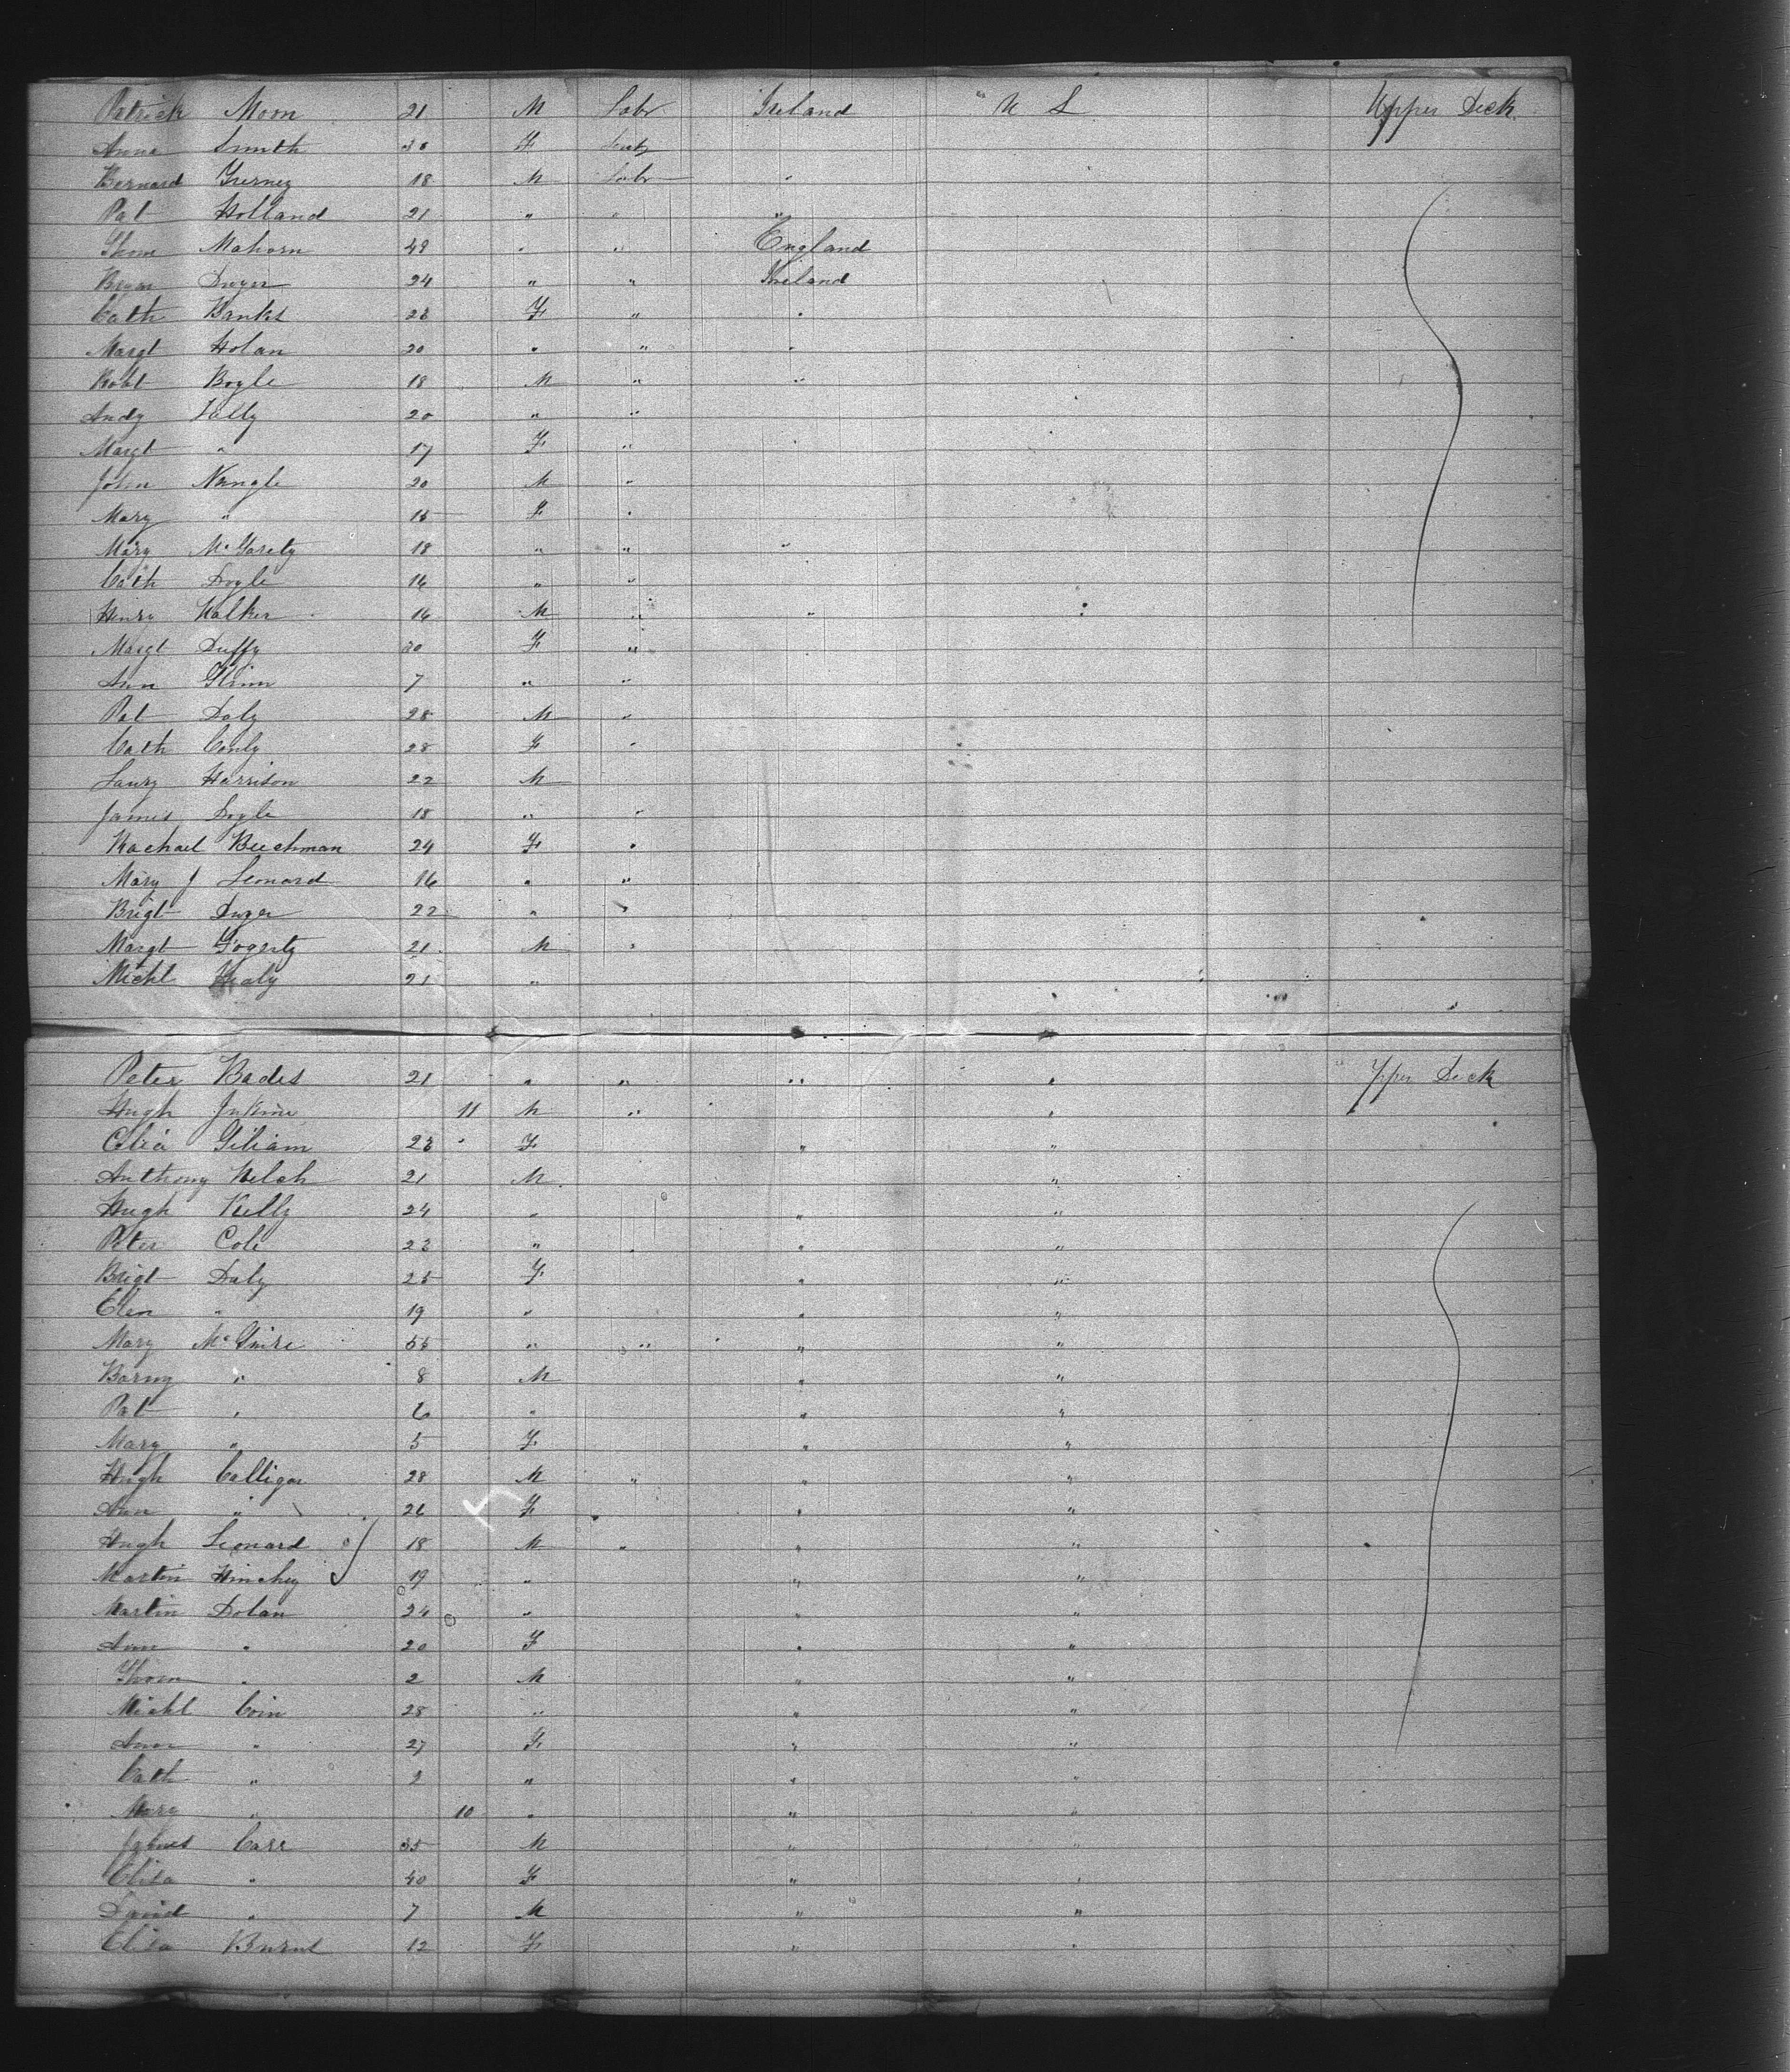 Patrick Morn 21 M Labr Ireland U S Upper Deck
Anna Smith 30 F
Bernard 18 M Labr "
Pat Holland 21 " " "
Thom Mahorn 48 " " England
Bryan Dwyer 24 " " Ireland
Cath Banks 23 F " "
Margt Holan 20 " " "
Robt Boyle 18 M " "
Andy 20 " "
Margt " 17 F " "
John Nangle 20 M "
Mary " 15 F "
Mary McGarety 18 " " "
Cath Doyle 16 " "
Henry Walker 16 M " "
Margt Duffy 20 F "
Ann Glinn 7 " "
Pat Daly 28 M "
Cath Conly 28 F "
Laury Harrison 22 M
James Doyle 18 " "
Rachael Beechman 24 F "
Mary J Leonard 16 " "
Brigt Dwyer 22 " "
Margt Gogerty 21 M "
Michl Healy 21 "
Peter Bades 21 " " " " Upper Deck
Hugh 11 M " "
Celia Giliam 23 F " "
Anthony Welch 21 M "
Hugh Kelly 24 " " "
Peter Cole 23 " " " "
Brigt Daly 25 F " "
Elen " 19 " " "
Mary McGuire 55 " " " "
Barny " 8 M " "
Pat " 6 " " "
Mary " 5 F " "
Hugh Calligan 28 M " " "
Ann " 26 F " "
Hugh Leonard 18 M " " "
Martin Hinchey 19 " " "
Martin Dolan 24 " " "
Ann " 20 F " "
Thom " 2 M " "
Michl Coin 28 " " "
Ann " 27 F " "
Cath " 2 " " "
Mary " 10 " " "
James Carr 35 M " "
Eliza " 40 F " "
David " 7 M " "
Eliza Burnt 12 F " "